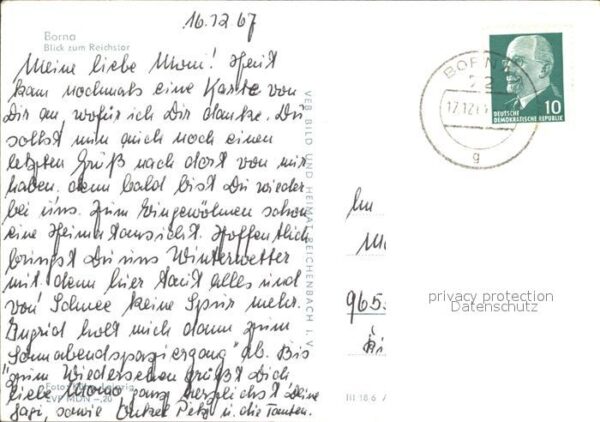 16.12.67
Borna
Blick zum Reichstor
Meine liebe Moni! Heut
kam nochmals eine Karte von
Dir an, wofür ich Dir danke. Du
sollst nun auch noch einen
letzten Gruß nach dort von mir
haben, denn bald bist Du wieder
bei uns. Zum Eingewöhnen schon
eine Heimatansicht. Hoffentlich
bringst Du uns Winterwetter
mit, denn hier taut alles und
von Schnee keine Spur mehr.
Ingrid holt mich dann zum
"Sonnabendspaziergang" ab. Bis
zum Wiedersehen grüßt Dich
liebe Mono ganz herzlichst Deine
sowie Onkel u. die Tanten.
Foto:
VEB BILD UND HEIMAT REICHENBACH I. V.
BORNA
17.12.
g
10
DEUTSCHE
DEMOKRATISCHE REPUBLIK
965
privacy protection
Datenschutz
III 18 6